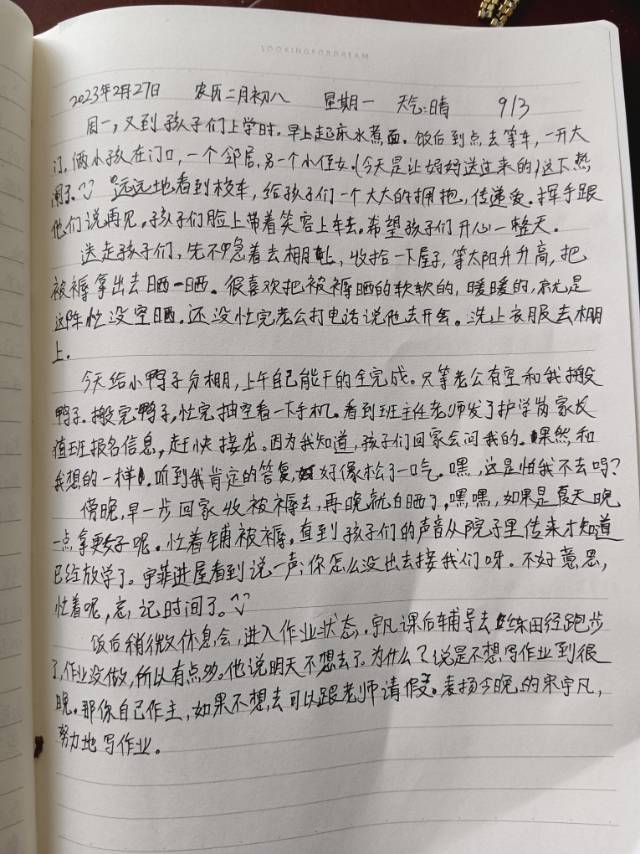 LOOKINGFORDREAM
2023年2月27日 农历二月初八 星期一 天气:晴 9/3
周一,又到孩子们上学时。早上起床水煮面。饭后到点去等车,一开大
门。俩小孩在门口,一个邻居,另一个小侄女。(今天是让妈妈送过来的)这下热
闹了。远远地看到校车,给孩子们一个大大的拥抱,传递爱。挥手跟
他们说再见。孩子们脸上带着笑容上车去。希望孩子们开心一整天。
送走孩子们,先不急着去棚上,收拾一下屋子,等太阳升升高,把
被褥拿出去晒一晒。很喜欢把被褥晒的软软的,暖暖的,就是
这阵忙没空晒。还没忙完老公打电话说他去开会。洗上衣服去棚
上。
今天给小鸭子分棚,上午自己能干的全完成。只等老公有空和我搬
鸭子。搬完鸭子,忙完抽空看一下手机。看到班主任老师发了护学岗家长
值班报名信息,赶快接龙。因为我知道,孩子们回家会问我的。果然和
我想的一样。听到我肯定的答复,好像松了一口气。嘿,这是怕我不去吗?
傍晚,早一步回家收被褥去,再晚就白晒了,嘿嘿,如果是夏天晚
一点拿更好呢。忙着铺被褥。直到孩子们的声音从院子里传来才知道
已经放学了。宇菲进屋看到说一声:你怎么没出去接我们呀。不好意思,
忙着呢,忘记时间了。
饭后稍微休息会,进入作业状态。宇凡课后辅导去练田径跑步
了,作业没做,所以有点多。他说明天不想去了。为什么?说是不想写作业到很
晚。那你自己作主,如果不想去可以跟老师请假。表扬今晚的宋宇凡,
努力地写作业。